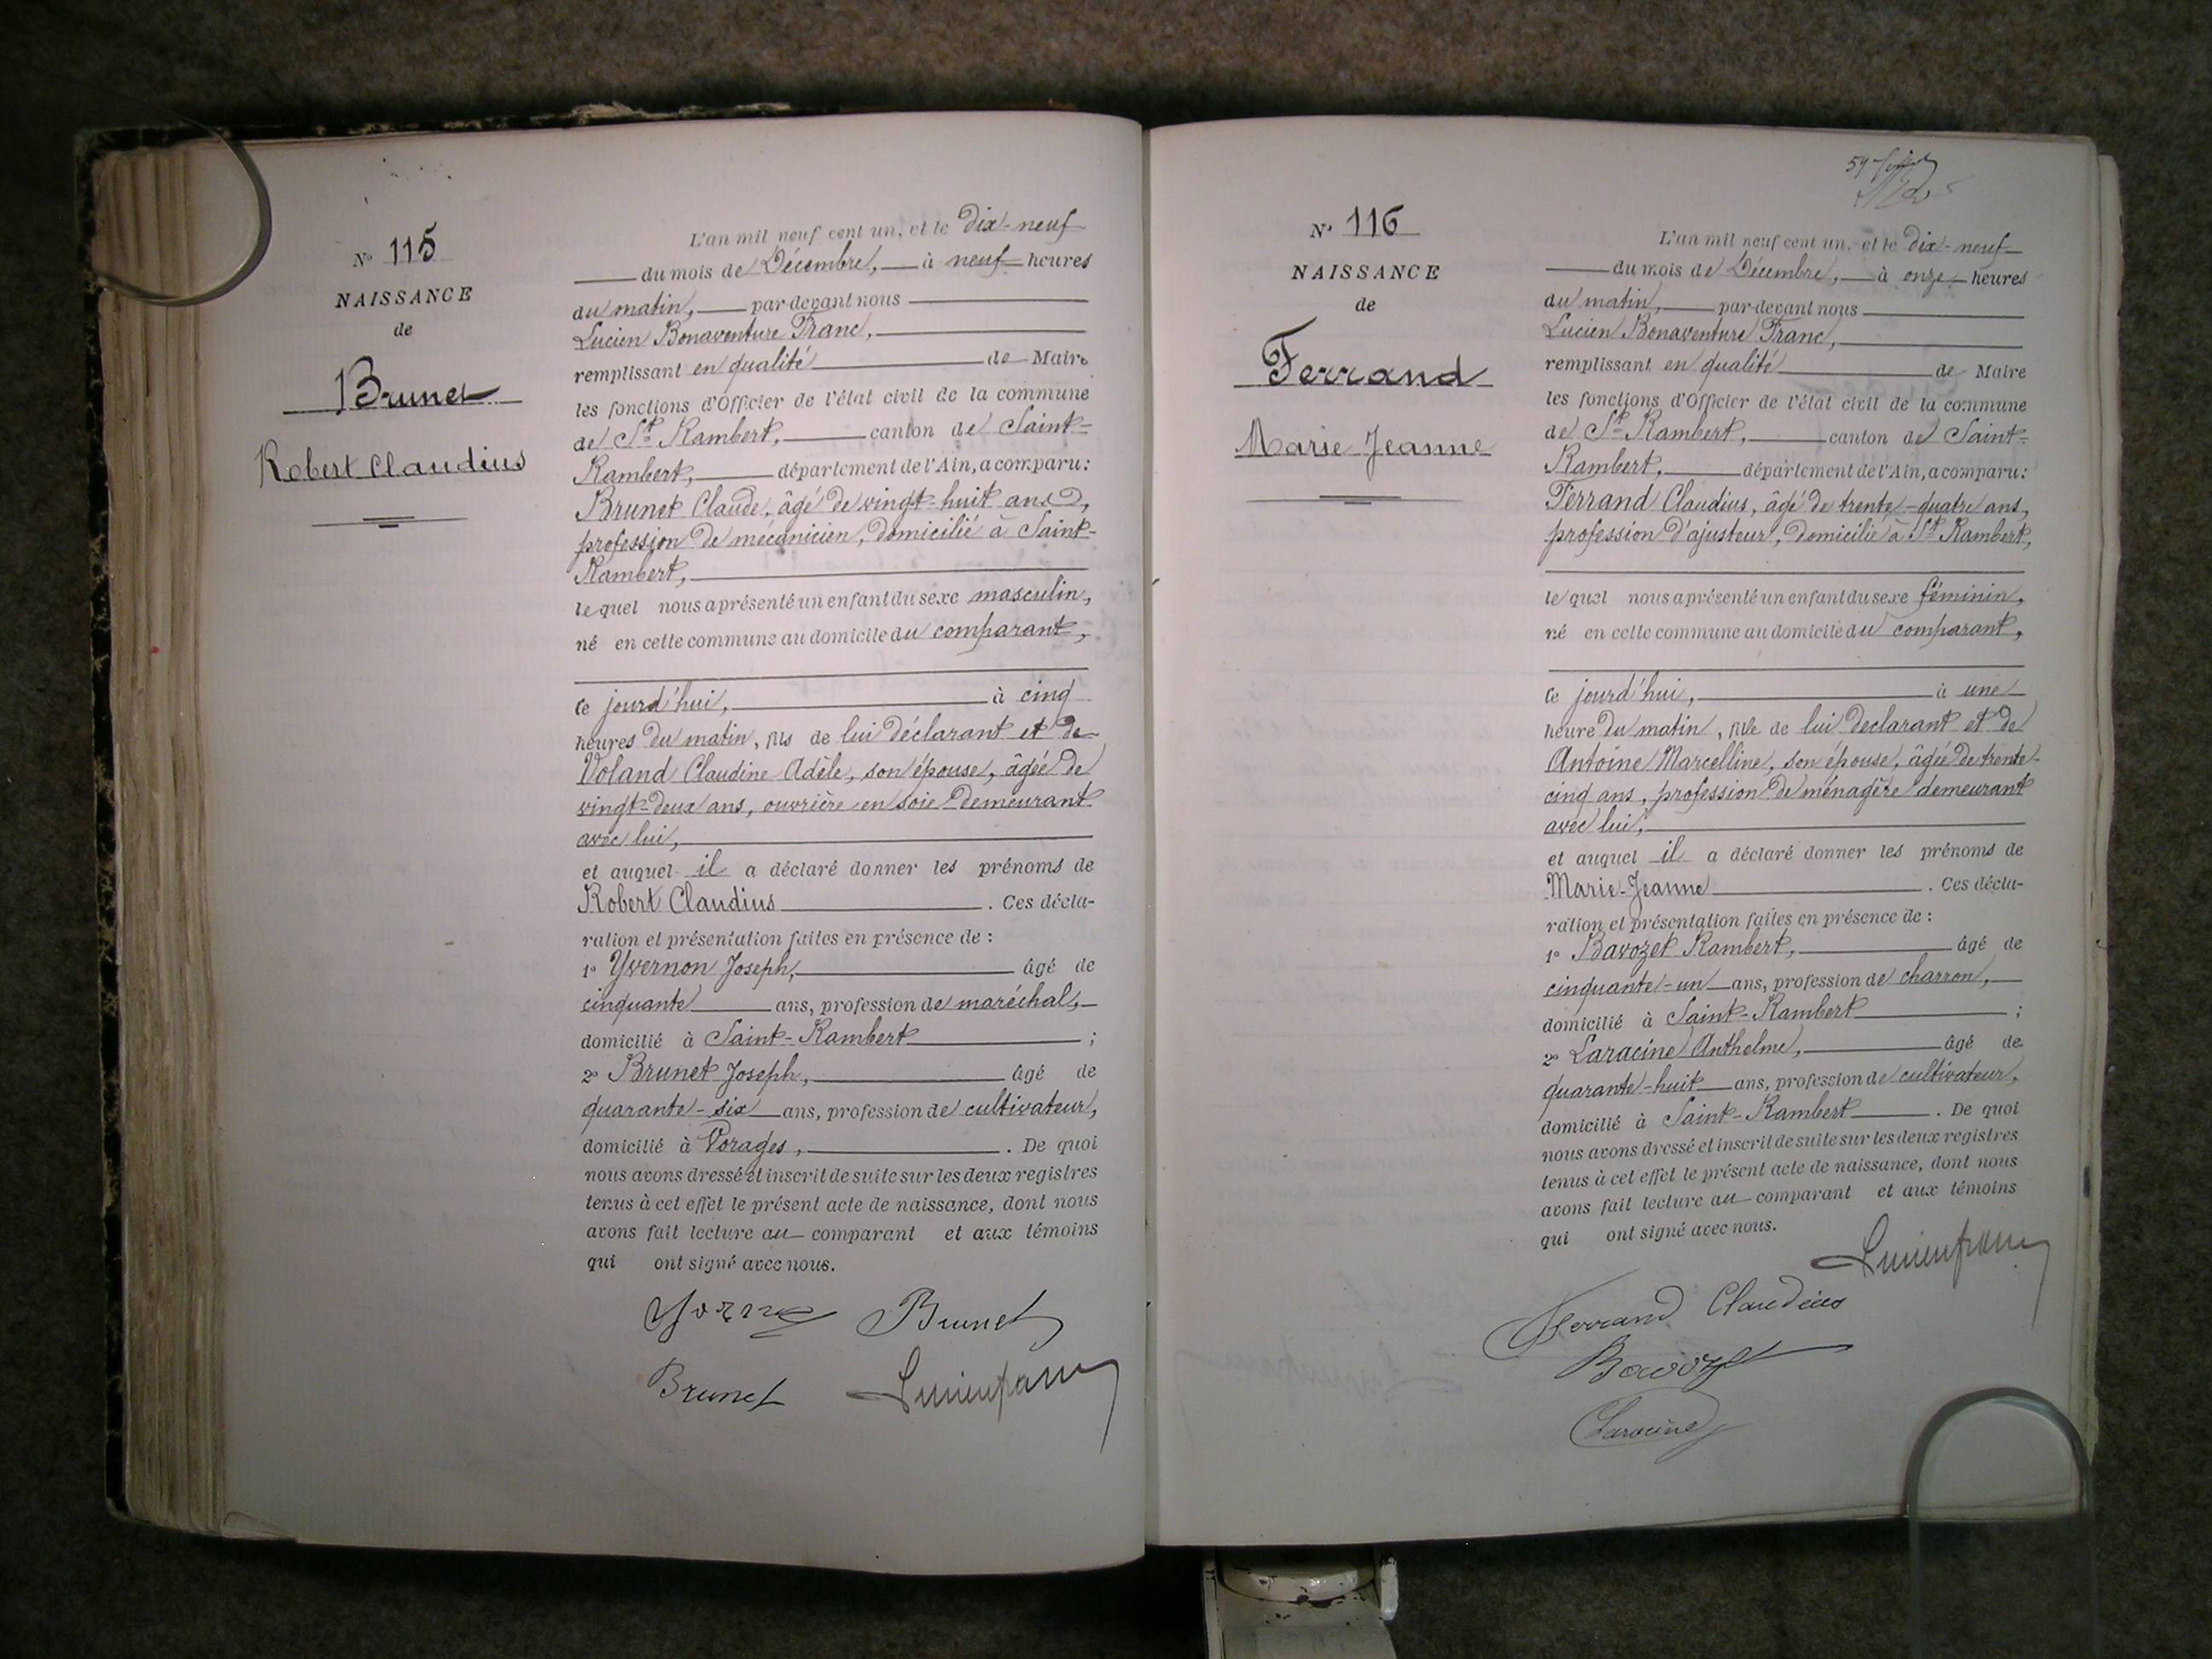 N° 115
NAISSANCE
de
Brunet
Robert Claudius
L'an mil neuf cent un, et le Dix-neuf
du mois de Décembre, à neuf heures
du matin, par-devant nous
Lucien Bonaventure Franc,
remplissant en qualité de Maire
les fonctions d'Officier de l'état civil de la commune
de St Rambert, canton de Saint-
Rambert, département de l'Ain, a comparu:
Brunet Claude, âgé de vingt-huit ans,
profession de mécanicien, domicilié à Saint-
Rambert,
lequel nous a présenté un enfant du sexe masculin,
né en cette commune au domicile du comparant,
ce jourd'hui, à cinq
heures du matin, fils de lui déclarant et de
Voland Claudine Adèle, son épouse, âgée de
vingt-deux ans, ouvrière en soie demeurant
avec lui,
et auquel il a déclaré donner les prénoms de
Robert Claudius. Ces décla-
ration et présentation faites en présence de :
1° Yvernon Joseph, âgé de
cinquante ans, profession de maréchal,
domicilié à Saint-Rambert ;
2° Brunet Joseph, âgé de
quarante-six ans, profession de cultivateur,
domicilié à Vorages, . De quoi
nous avons dressé et inscrit de suite sur les deux registres
tenus à cet effet le présent acte de naissance, dont nous
avons fait lecture au comparant et aux témoins
qui ont signé avec nous.
Brunet
Brunet Lucienfranc
59
N° 116
NAISSANCE
de
Ferrand
Marie Jeanne
L'an mil neuf cent un, et le dix-neuf
du mois de Décembre, à onze heures
du matin, par-devant nous
Lucien Bonaventure Franc,
remplissant en qualité de Maire
les fonctions d'Officier de l'état civil de la commune
de St Rambert, canton de Saint-
Rambert, département de l'Ain, a comparu:
Ferrand Claudius, âgé de trente-quatre ans,
profession d'ajusteur, domicilié à St Rambert,
lequel nous a présenté un enfant du sexe féminin,
né en cette commune au domicile du comparant,
ce jourd'hui, à une
heure du matin, fille de lui declarant et de
Antoine Marcelline, son épouse, âgée de trente-
cinq ans, profession de ménagère demeurant
avec lui,
et auquel il a déclaré donner les prénoms de
Marie-Jeanne . Ces décla-
ration et présentation faites en présence de :
1° Bavozet Rambert, âgé de
cinquante-un ans, profession de charron,
domicilié à Saint-Rambert ;
2° Laracine Anthelme, âgé de
quarante-huit ans, profession de cultivateur,
domicilié à Saint-Rambert . De quoi
nous avons dressé et inscrit de suite sur les deux registres
tenus à cet effet le présent acte de naissance, dont nous
avons fait lecture au comparant et aux témoins
qui ont signé avec nous.
Lucienfranc
Ferrand Claudius
Bavozet
Laracine